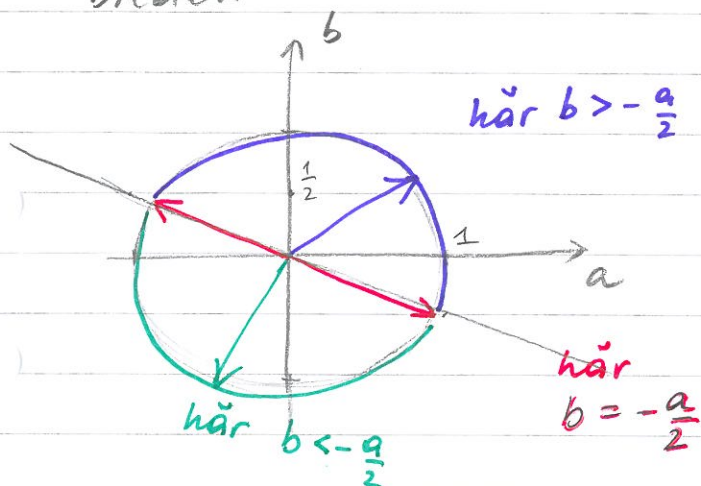 b
här b > - a/2
1/2
1
a
här
b = - a/2
här b < - a/2